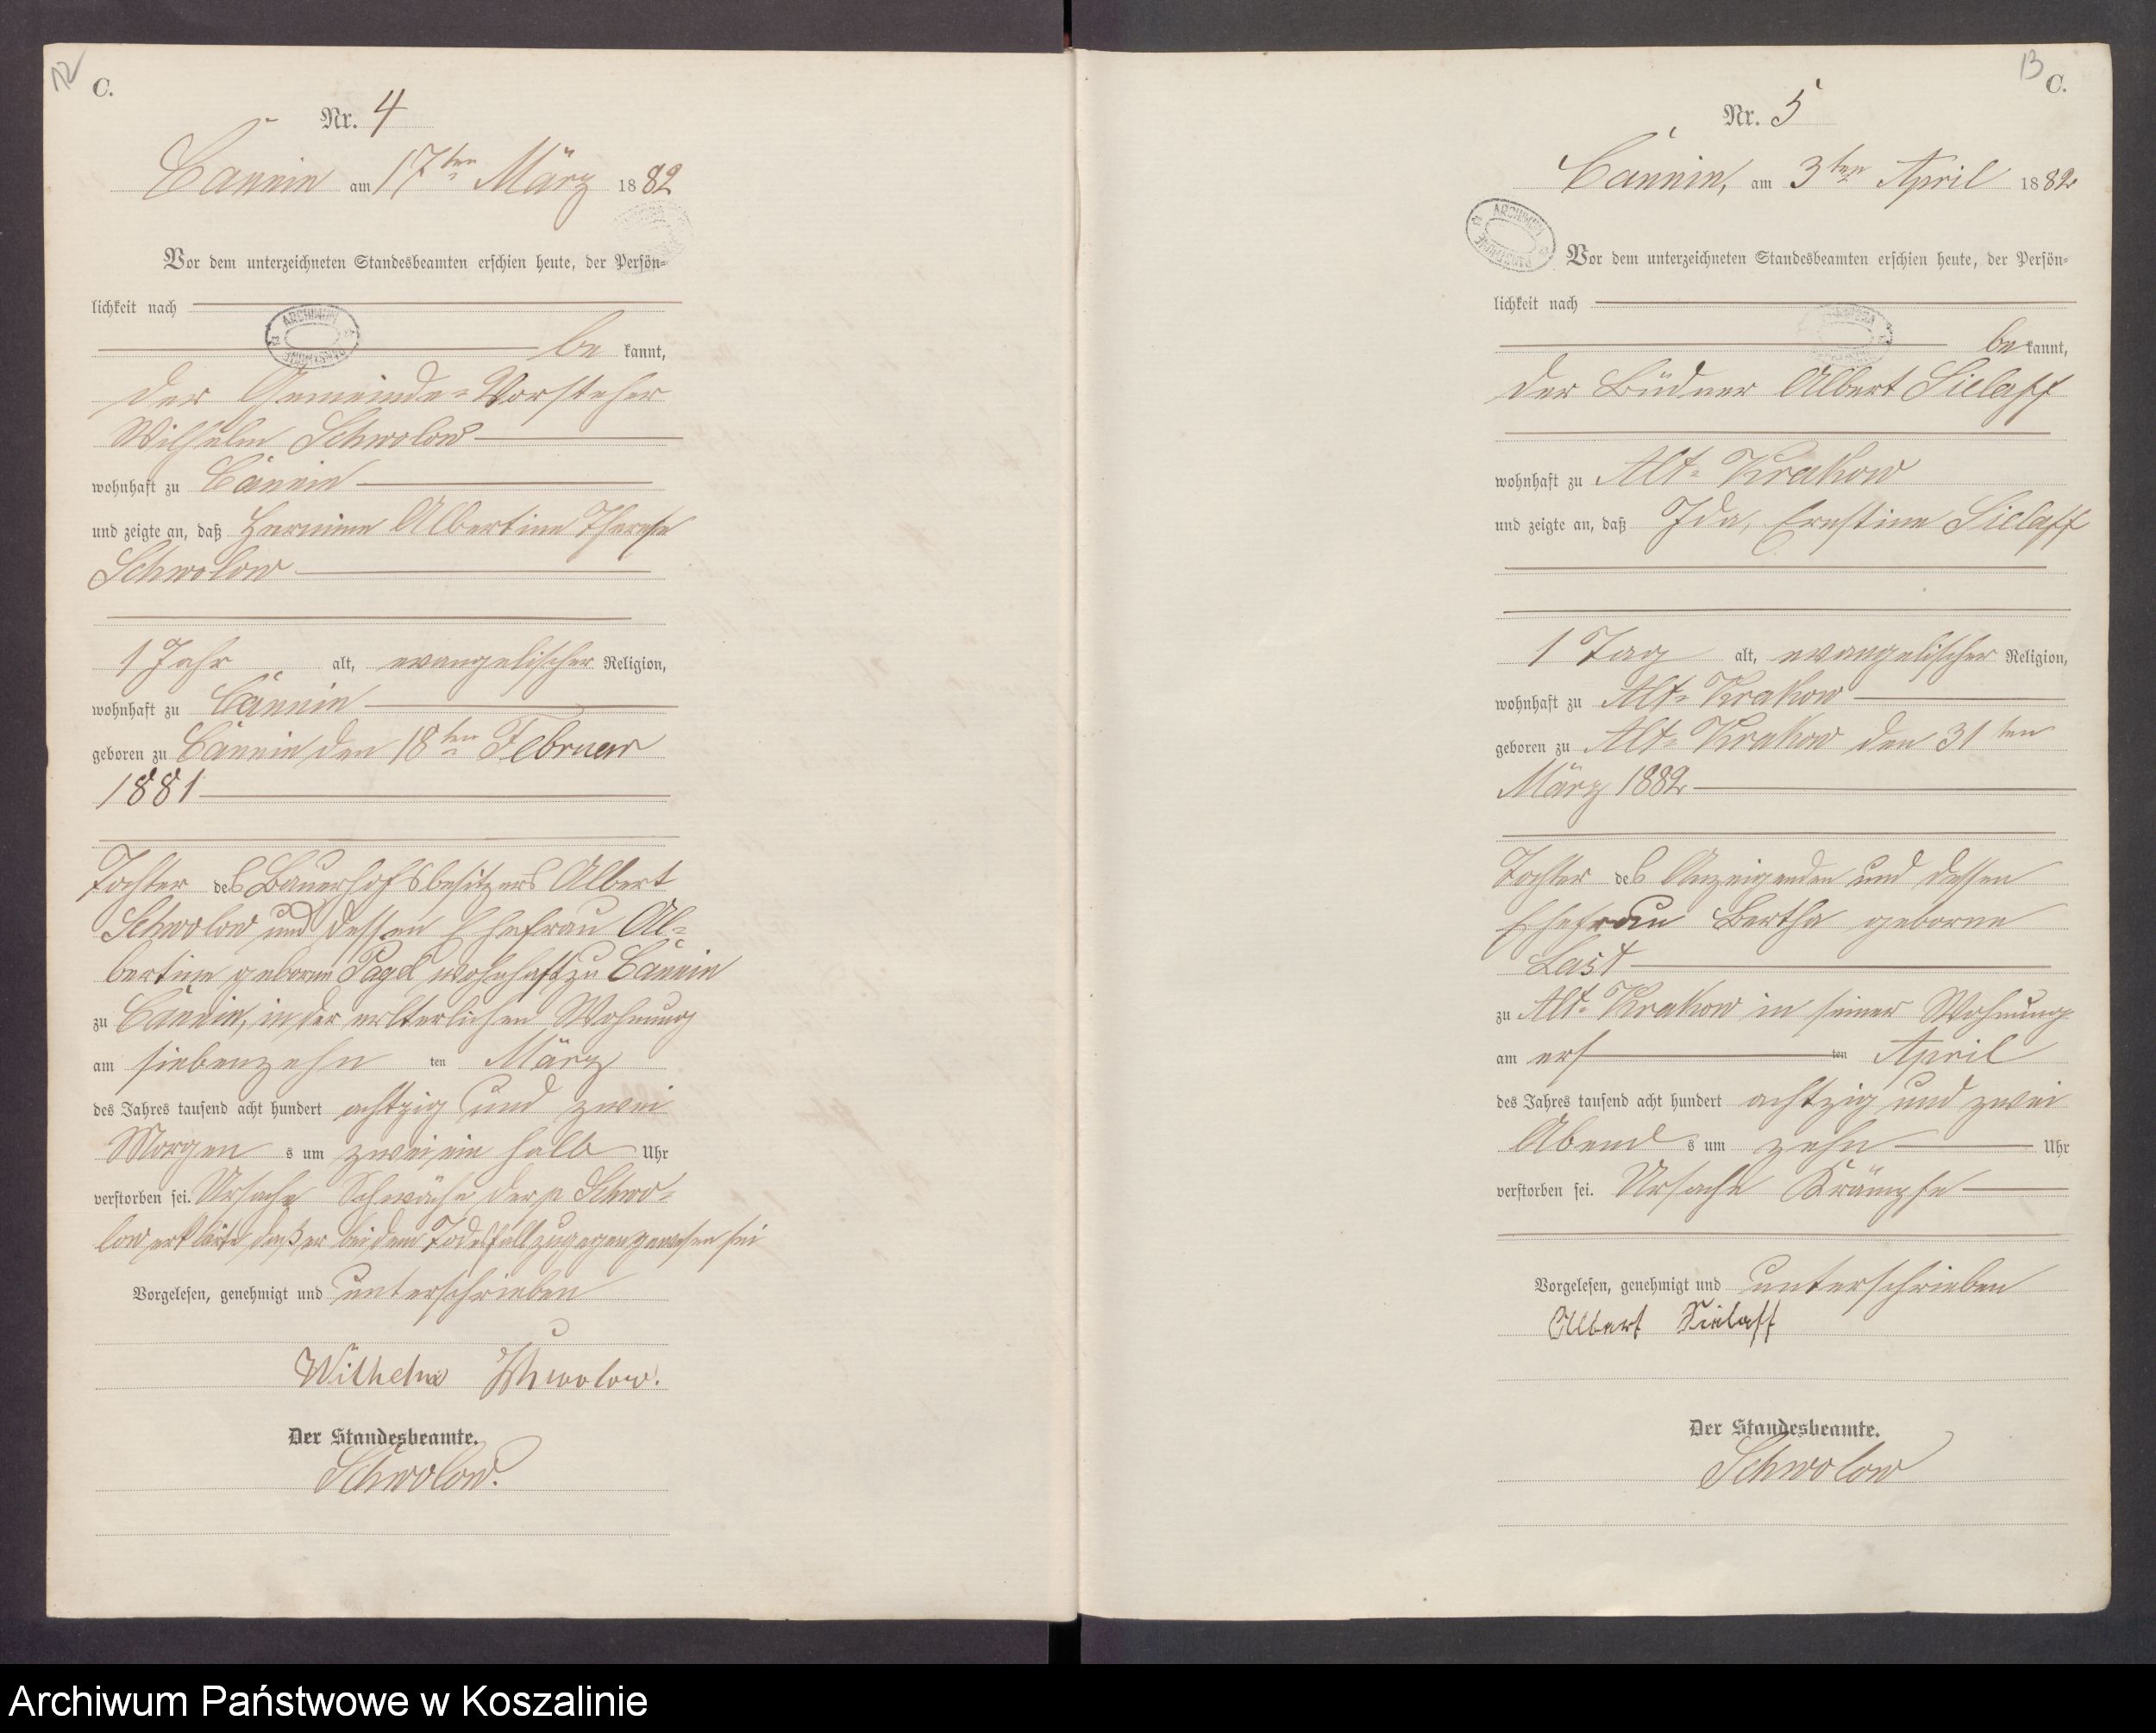 12
C.
Nr. 4
Cannin am 17ten März 1882
Vor dem unterzeichneten Standesbeamten erschien heute, der Persön-
lichkeit nach
be kannt,
der Gemeinde-Vorsteher
Wilhelm Schwolow
wohnhaft zu Cannin
und zeigte an, daß Hermine Albertine Therese
Schwolow
1 Jahr alt, evangelischer Religion,
wohnhaft zu Cannin
geboren zu Cannin den 18ten Februar
1881
Tochter des Bauerhofsbesitzers Albert
Schwolow und dessen Ehefrau Al-
bertine geborne Pagel wohnhaft zu Cannin
zu Cannin, in der erlterlichen Wohnung
am siebenzehn ten März
des Jahres tausend acht hundert achtzig und zwei
Morgen s um zwei ein halb Uhr
verstorben sei. Ursache Schwäche der p Schwo-
low erklärte, daß er bei dem Todesfall zugegen gewesen sei
Vorgelesen, genehmigt und unterschrieben
Wilhelm Schwolow.
Der Standesbeamte.
Schwolow.
13
C.
Nr. 5
Cannin, am 3ten April 1882
ARCHIWUM
Vor dem unterzeichneten Standesbeamten erschien heute, der Persön-
lichkeit nach
be kannt,
der Büdner Albert Sielaff
wohnhaft zu Alt-Krakow
und zeigte an, daß Ida, Ernstine Sielaff
1 Tag alt, evangelischer Religion,
wohnhaft zu Alt-Krakow
geboren zu Alt-Krakow den 31ten
März 1882
Tochter des Anzeigenden und dessen
Ehefrau Bertha geborne
Last
zu Alt-Krakow in seiner Wohnung
am ers ten April
des Jahres tausend acht hundert achtzig und zwei
Abend s um zehn Uhr
verstorben sei. Ursache Krämpfe
Vorgelesen, genehmigt und unterschrieben
Albert Sielaff
Der Standesbeamte.
Schwolow
Archiwum Państwowe w Koszalinie